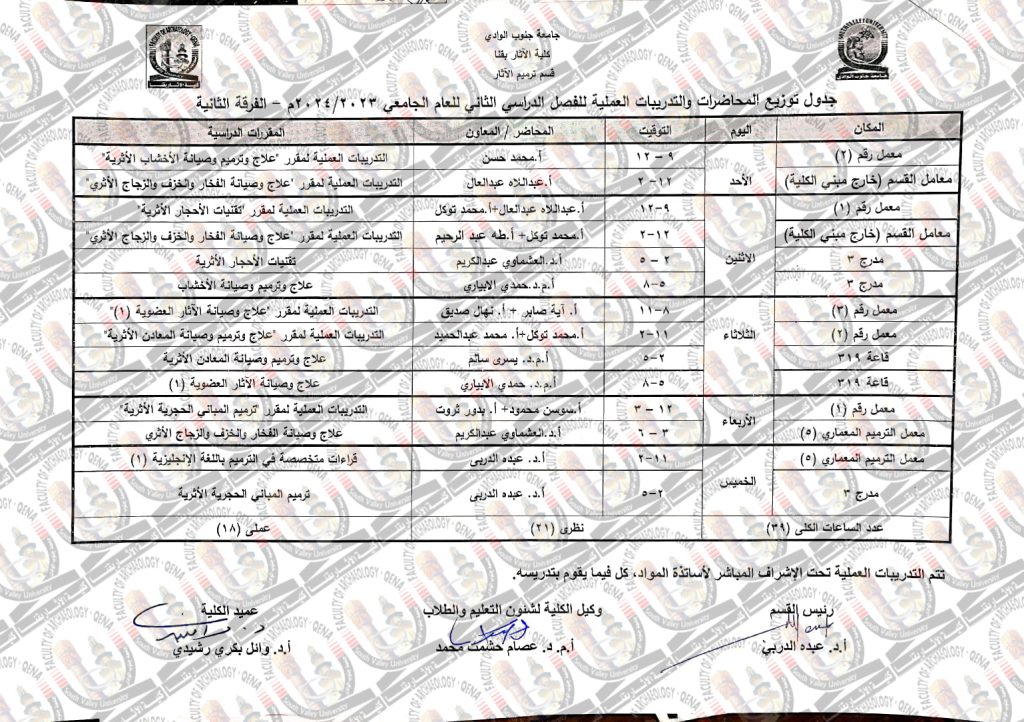 جامعة جنوب الوادي
كلية الآثار بقنا
قسم ترميم الآثار
جدول توزيع المحاضرات والتدريبات العملية للفصل الدراسي الثاني للعام الجامعي ٢٠٢٤/٢٠٢٣م – الفرقة الثانية
المكان اليوم التوقيت المحاضر / المعاون المقررات الدراسية
معمل رقم (٢) الأحد ٩ – ١٢ أ.محمد حسن التدريبات العملية لمقرر "علاج وترميم وصيانة الأخشاب الأثرية"
معامل القسم (خارج مبني الكلية) ١٢–٢ أ.عبداللاه عبدالعال التدريبات العملية لمقرر "علاج وصيانة الفخار والخزف والزجاج الأثري"
معمل رقم (١) الاثنين ٩–١٢ أ.عبداللاه عبدالعال+أ.محمد توكل التدريبات العملية لمقرر "تقنيات الأحجار الأثرية"
معامل القسم (خارج مبني الكلية) ١٢–٢ أ.محمد توكل+ أ.طه عبد الرحيم التدريبات العملية لمقرر "علاج وصيانة الفخار والخزف والزجاج الأثري"
مدرج ٣ ٢ – ٥ أ.د.العشماوي عبدالكريم تقنيات الأحجار الأثرية
مدرج ٣ ٥–٨ أ.م.د.حمدي الابياري علاج وترميم وصيانة الأخشاب
معمل رقم (٣) الثلاثاء ٨–١١ أ. آية صابر + أ. نهال صديق التدريبات العملية لمقرر "علاج وصيانة الآثار العضوية (١)"
معمل رقم (٢) ١١–٢ أ.محمد توكل+أ. محمد عبدالحميد التدريبات العملية لمقرر "علاج وترميم وصيانة المعادن الأثرية"
قاعة ٣١٩ ٢–٥ أ.م.د. يسرى سالم علاج وترميم وصيانة المعادن الأثرية
قاعة ٣١٩ ٥–٨ أ.م.د. حمدي الابياري علاج وصيانة الآثار العضوية (١)
معمل رقم (١) الأربعاء ١٢ – ٣ أ.سوسن محمود+ أ. بدور ثروت التدريبات العملية لمقرر "ترميم المباني الحجرية الأثرية"
معمل الترميم المعماري (٥) ٣ – ٦ أ.د.العشماوي عبدالكريم علاج وصيانة الفخار والخزف والزجاج الأثري
معمل الترميم المعماري (٥) الخميس ١١–٢ أ.د. عبده الدربى قراءات متخصصة في الترميم باللغة الإنجليزية (١)
مدرج ٣ ٢–٥ أ.د. عبده الدربى ترميم المباني الحجرية الأثرية
عدد الساعات الكلى (٣٩) نظرى (٢١) عملى (١٨)
تتم التدريبات العملية تحت الإشراف المباشر لأساتذة المواد، كل فيما يقوم بتدريسه.
رئيس القسم وكيل الكلية لشئون التعليم والطلاب عميد الكلية
أ.د. عبده الدربي أ.م.د. عصام حشمت محمد أ.د. وائل بكري رشيدي
FACULTY OF ARCHAEOLOGY · QENA
South Valley University